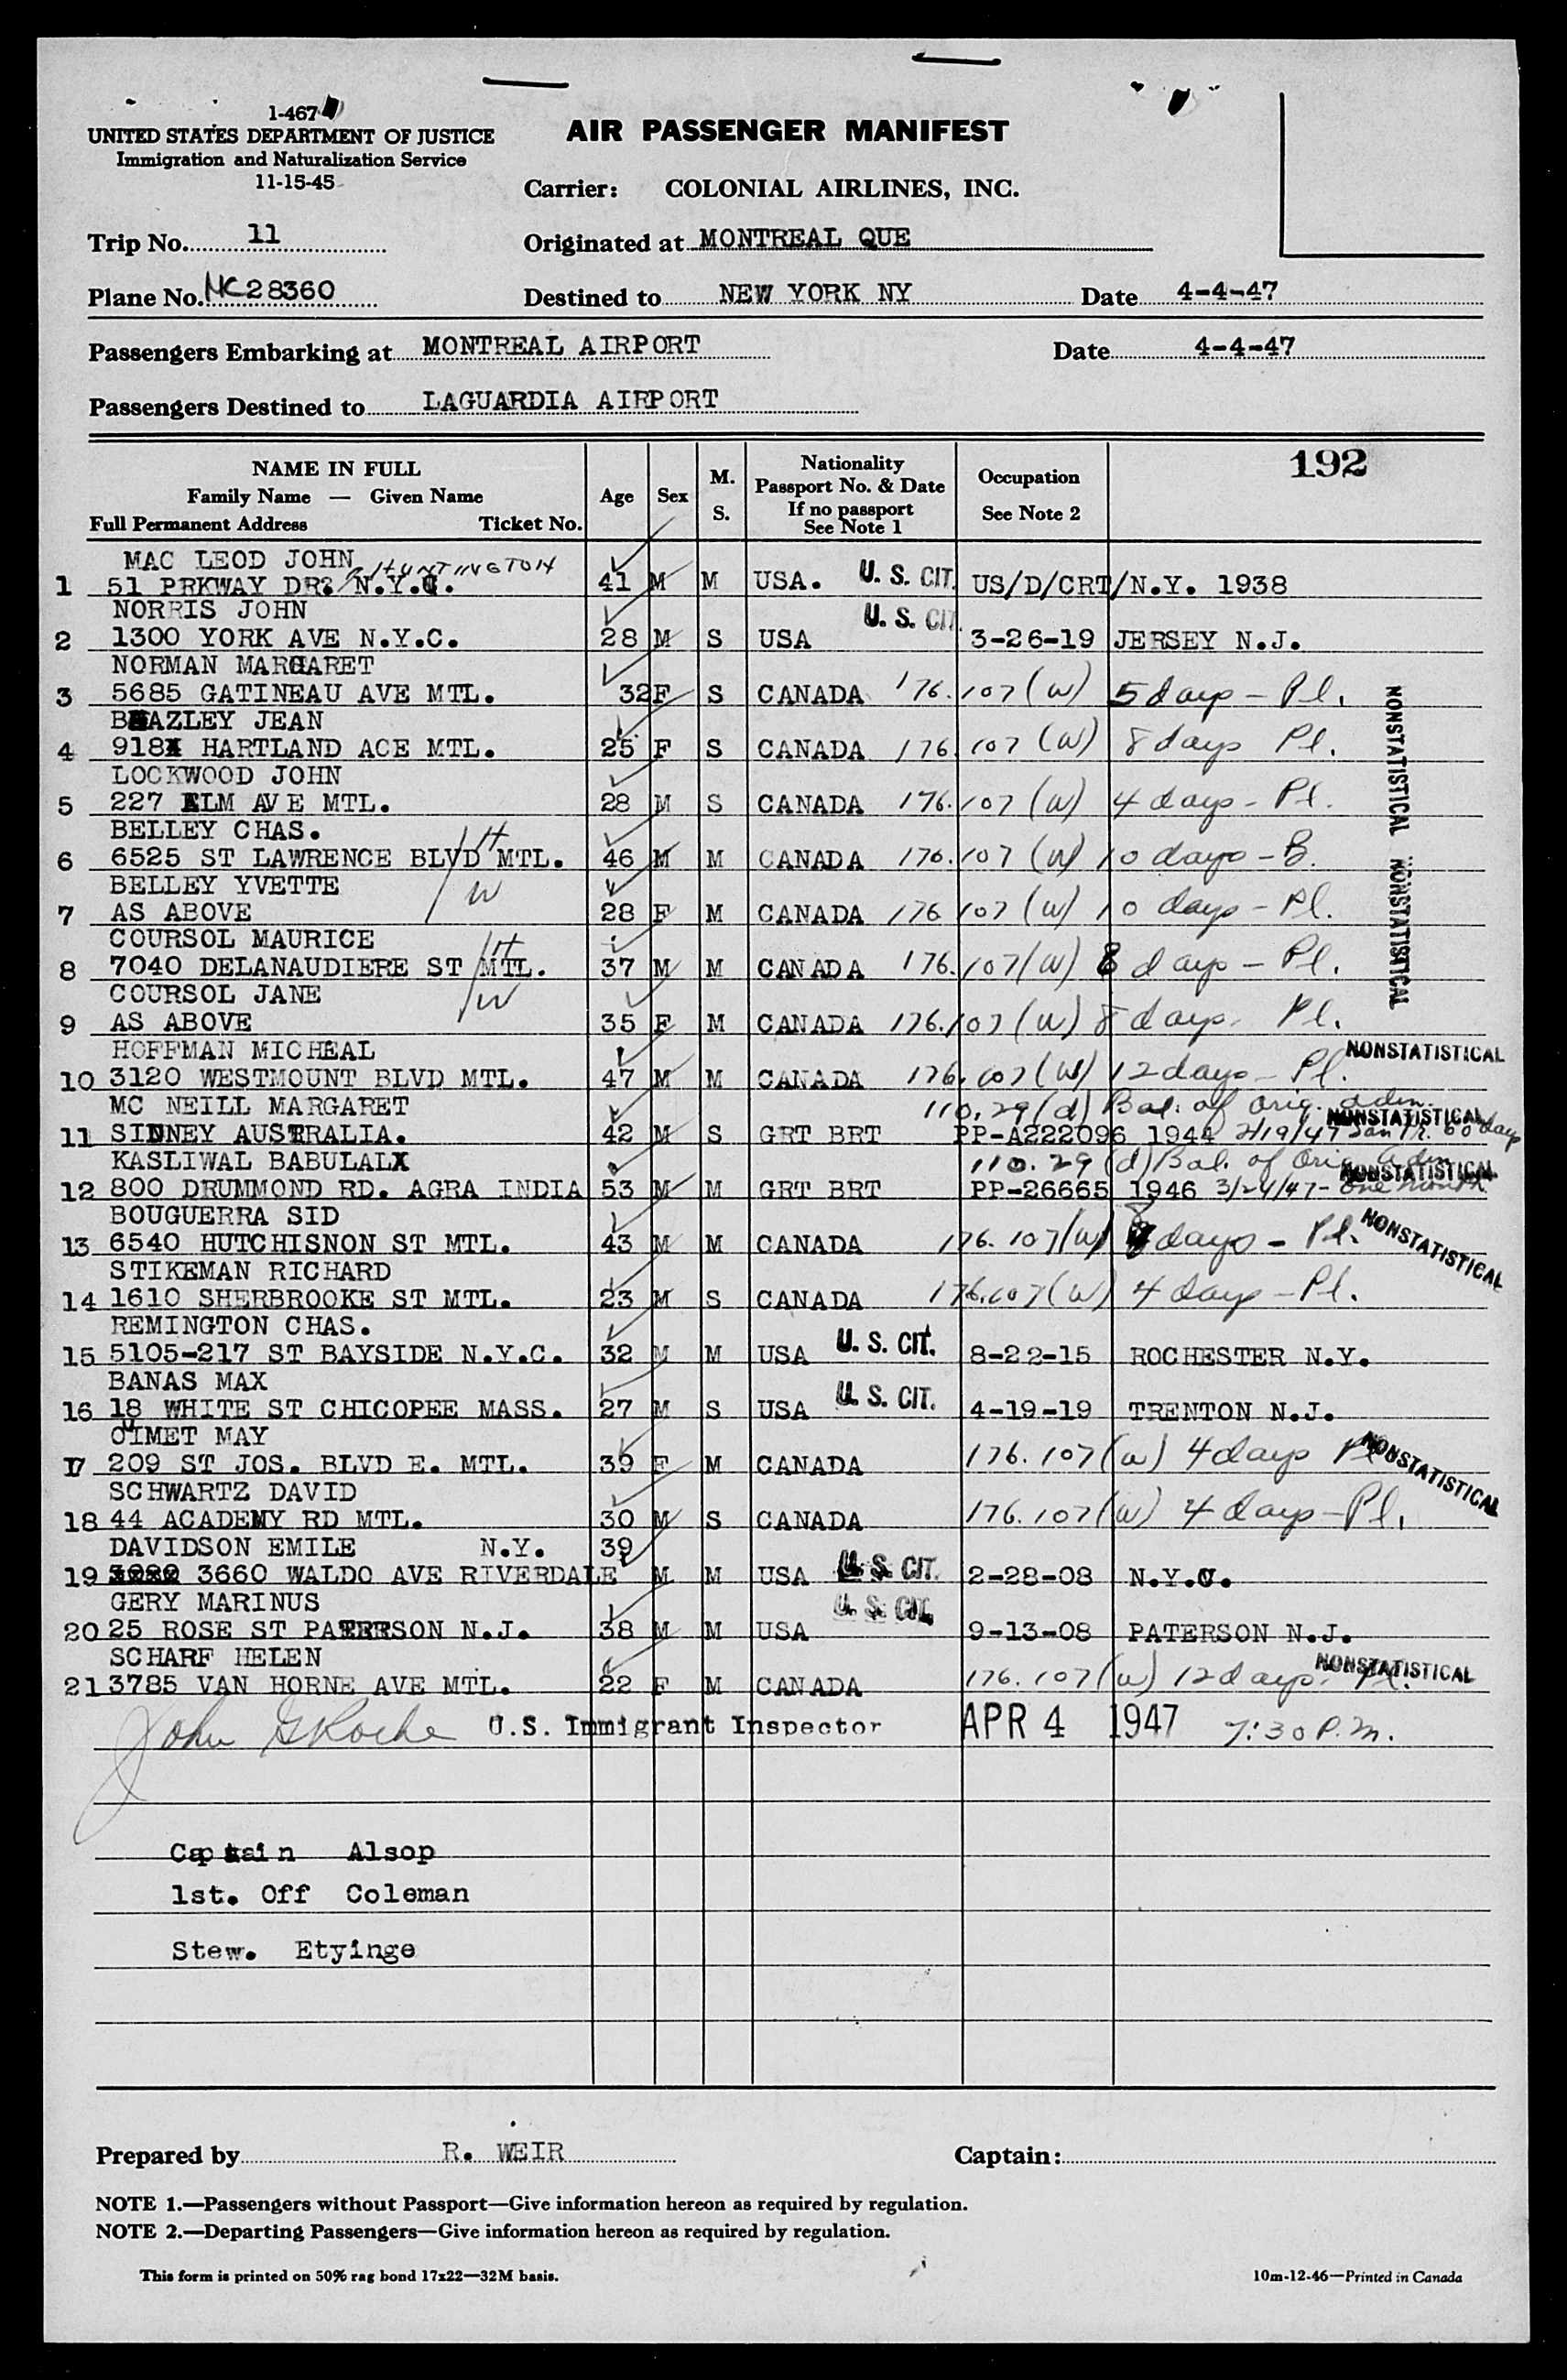 1-467
UNITED STATES DEPARTMENT OF JUSTICE
Immigration and Naturalization Service
11-15-45
AIR PASSENGER MANIFEST
Carrier: COLONIAL AIRLINES, INC.
Trip No. 11
Originated at MONTREAL QUE
Plane No. NC28360
Destined to NEW YORK NY Date 4-4-47
Passengers Embarking at MONTREAL AIRPORT Date 4-4-47
Passengers Destined to LAGUARDIA AIRPORT
192
NAME IN FULL
Family Name — Given Name
Full Permanent Address Ticket No.
Age
Sex
M.
S.
Nationality
Passport No. & Date
If no passport
See Note 1
Occupation
See Note 2
MAC LEOD JOHN HUNTINGTON
1 51 PRKWAY DR. N.Y. 41 M M USA. U. S. CIT. US/D/CRT/N.Y. 1938
NORRIS JOHN
2 1300 YORK AVE N.Y.C. 28 M S USA U. S. CIT. 3-26-19 JERSEY N.J.
NORMAN MARGARET
3 5685 GATINEAU AVE MTL. 32 F S CANADA 176.107 (w) 5 days - Pl.
BEAZLEY JEAN
4 918 HARTLAND ACE MTL. 25 F S CANADA 176.107 (w) 8 days Pl.
LOCKWOOD JOHN
5 227 ELM AVE MTL. 28 M S CANADA 176.107 (w) 4 days - Pl.
NONSTATISTICAL
BELLEY CHAS. H
6 6525 ST LAWRENCE BLVD MTL. 46 M M CANADA 176.107 (w) 10 days - B.
BELLEY YVETTE W
7 AS ABOVE 28 F M CANADA 176 107 (w) 10 days - Pl.
COURSOL MAURICE H
8 7040 DELANAUDIERE ST MTL. 37 M M CANADA 176.107 (w) 8 days - Pl.
NONSTATISTICAL
COURSOL JANE W
9 AS ABOVE 35 F M CANADA 176.107 (w) 8 days. Pl.
HOFFMAN MICHEAL NONSTATISTICAL
10 3120 WESTMOUNT BLVD MTL. 47 M M CANADA 176.107 (w) 12 days - Pl.
MC NEILL MARGARET 110.29 (d) Bal. of orig. adm.
NONSTATISTICAL
11 SIDNEY AUSTRALIA. 42 M S GRT BRT PP-A222096 1944 2/19/47 60 days
KASLIWAL BABULAL 110.29 (d) Bal. of Orig. adm
NONSTATISTICAL
12 800 DRUMMOND RD. AGRA INDIA 53 M M GRT BRT PP-26665 1946 3/24/47 - one month
BOUGUERRA SID
13 6540 HUTCHISNON ST MTL. 43 M M CANADA 176.107 (w) 8 days - Pl. NONSTATISTICAL
STIKEMAN RICHARD
14 1610 SHERBROOKE ST MTL. 23 M S CANADA 176.107 (w) 4 days - Pl.
REMINGTON CHAS.
15 5105-217 ST BAYSIDE N.Y.C. 32 M M USA U. S. CIT. 8-22-15 ROCHESTER N.Y.
BANAS MAX
16 18 WHITE ST CHICOPEE MASS. 27 M S USA U. S. CIT. 4-19-19 TRENTON N.J.
OUIMET MAY
17 209 ST JOS. BLVD E. MTL. 39 F M CANADA 176.107 (w) 4 days Pl NONSTATISTICAL
SCHWARTZ DAVID
18 44 ACADEMY RD MTL. 30 M S CANADA 176.107 (w) 4 days - Pl.
DAVIDSON EMILE N.Y. 39
19 3660 WALDO AVE RIVERDALE M M USA U. S. CIT. 2-28-08 N.Y.C.
GERY MARINUS
20 25 ROSE ST PATERSON N.J. 38 M M USA U. S. CIT. 9-13-08 PATERSON N.J.
SCHARF HELEN
21 3785 VAN HORNE AVE MTL. 22 F M CANADA 176.107 (w) 12 days. Pl. NONSTATISTICAL
John G Roche U.S. Immigrant Inspector APR 4 1947 7:30 P.M.
Captain Alsop
1st. Off Coleman
Stew. Etyinge
Prepared by R. WEIR Captain:
NOTE 1.—Passengers without Passport—Give information hereon as required by regulation.
NOTE 2.—Departing Passengers—Give information hereon as required by regulation.
This form is printed on 50% rag bond 17x22—32M basis.
10m-12-46—Printed in Canada